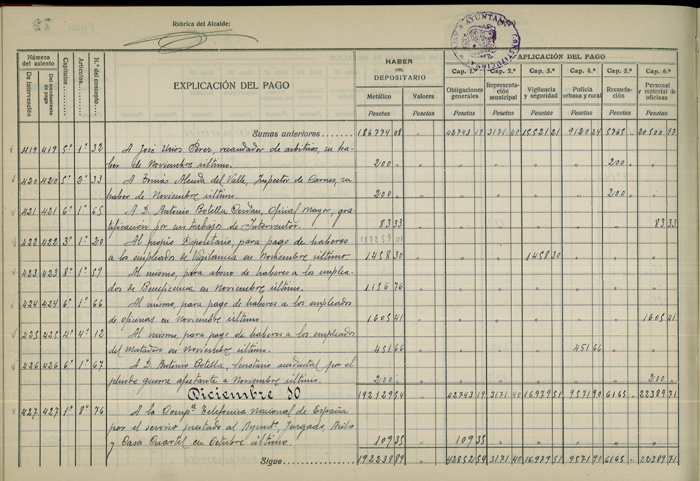 Rúbrica del Alcalde:
AYUNTAMIENTO CONSTITUCIONAL
Número del asiento
De intervención
Del mandamiento de pago
Capítulos
Artículos
N.º del concepto
EXPLICACIÓN DEL PAGO
HABER DEL DEPOSITARIO
Metálico Valores
Pesetas Pesetas
APLICACIÓN DEL PAGO
Cap. 1.º Cap. 2.º Cap. 3.º Cap. 4.º Cap. 5.º Cap. 6.º
Obligaciones generales Representación municipal Vigilancia y seguridad Policía urbana y rural Recaudación Personal y material de oficinas
Pesetas Pesetas Pesetas Pesetas Pesetas Pesetas
Sumas anteriores 186774 08 " 42743 19 3171 40 15521 21 9120 24 5765 " 20500 97
419 419 5º 1º 32 A José Urios Pérez, recaudador de arbitrios, su ha-
ber de Noviembre último. 200 " 200 "
420 420 5º 2º 33 A Tomás Alenda del Valle, Inspector de Carnes, su
haber de Noviembre último. 200 " 200 "
421 421 6º 1º 65 A D. Antonio Botella Cerdán, Oficial Mayor, gra-
tificación por sus trabajos de Interventor. 83 33 83 33
422 422 3º 1º 20 Al propio Depositario, para pago de haberes
a los empleados de Vigilancia en Noviembre último 1458 30 1458 30
423 423 8º 1º 59 Al mismo, para abono de haberes a los emplea-
dos de Beneficencia en Noviembre último. 1156 76
424 424 6º 1º 66 Al mismo, para pago de haberes a los empleados
de oficinas en Noviembre último. 1605 41 1605 41
425 425 4º 4º 12 Al mismo, para pago de haberes a los empleados
del Matadero en Noviembre último. 451 66 451 66
426 426 6º 1º 67 A D. Antonio Botella, Secretario accidental por el
a Noviembre último. 200 " 200 "
Diciembre 30 192129 54 " 42743 19 3171 40 16979 51 9571 90 6165 " 22389 71
427 427 1º 8º 76 A la Compª. Telefónica Nacional de España
por el servicio prestado al Ayuntº, Juzgado,
y Casa Cuartel en Octubre último. 109 35 109 35
Sigue 192238 89 42852 54 3171 40 16979 51 9571 90 6165 " 22389 71